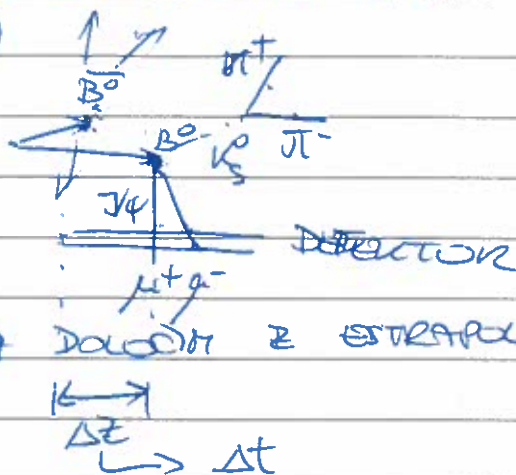 π⁺
B̄⁰
B⁰ K⁰s π⁻
J/ψ
DETECTOR
μ⁺ μ⁻
DOLOČIM Z EXTRAPOL
ΔZ
Δt